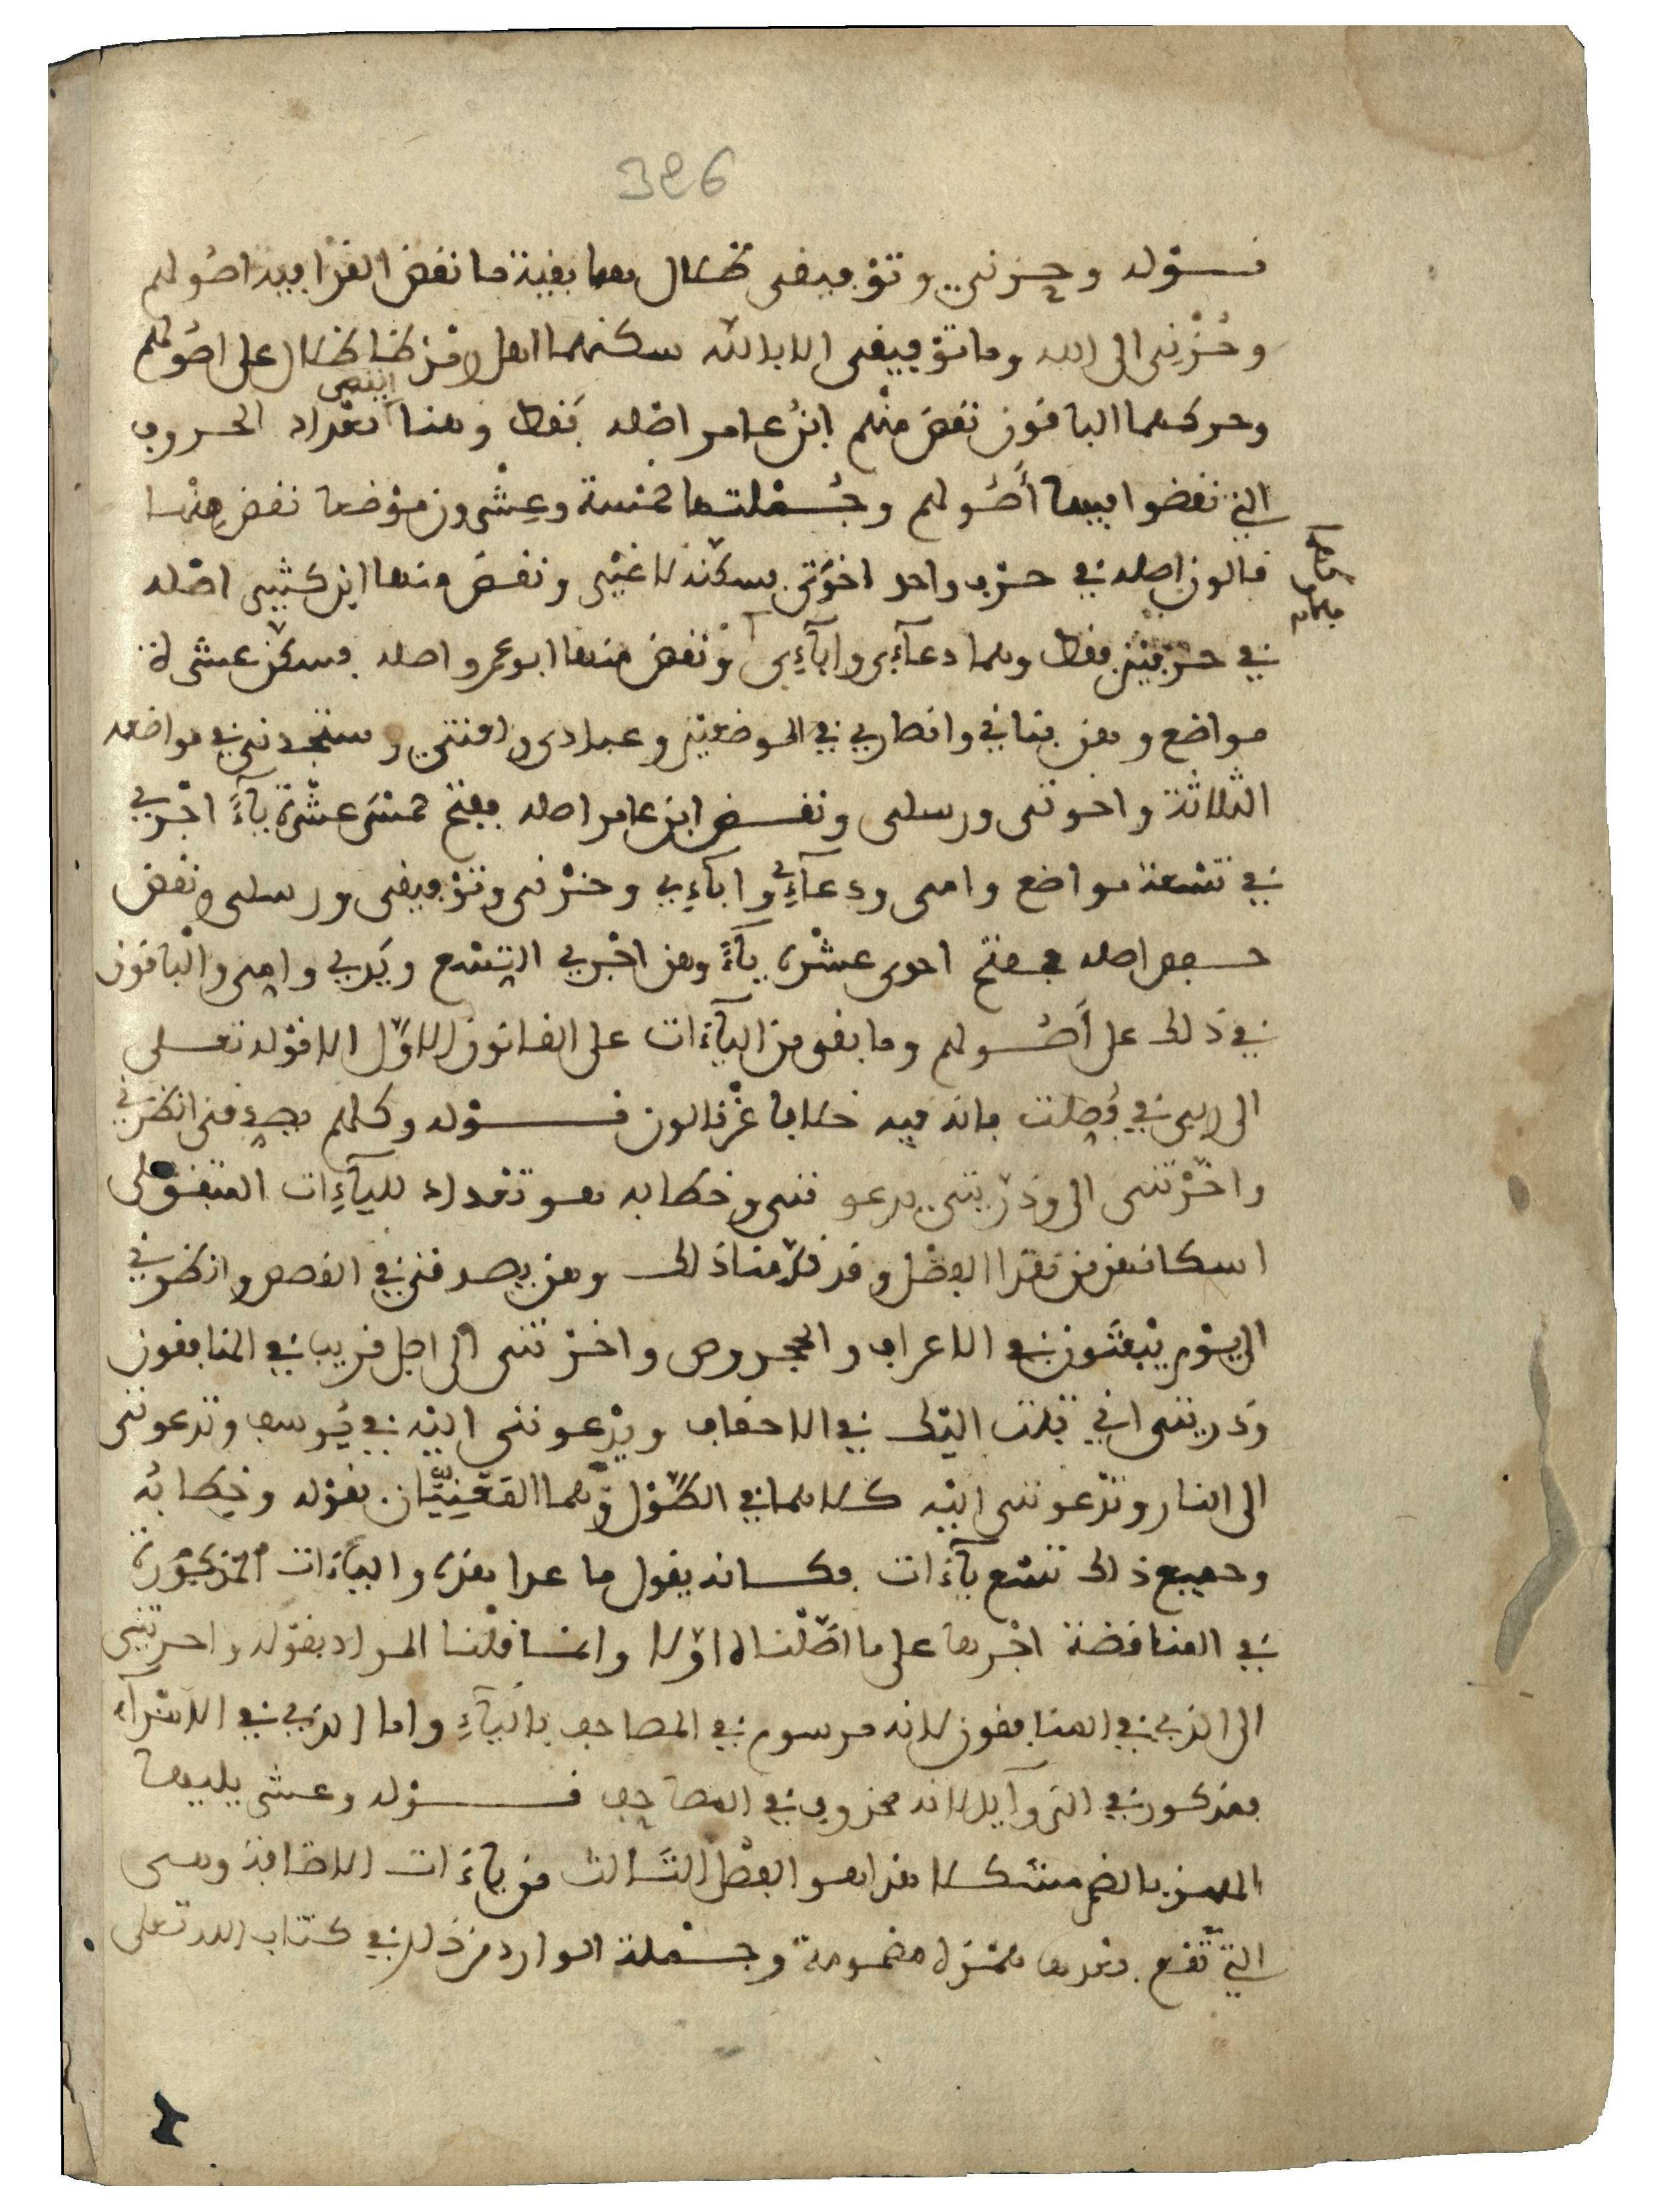 326
قـوله وحزني وتوفيقي ظلال هما بقية ما نقض القرا فيه اصولهم
وحُزْنِى الى الله وما توفيقى الا بالله سكنهما اهل ظلال على اصولهم
وحركهما الباقون نقض منهم ابن عامر اصله فقط وهنا انتهى تعداد الحروف
التي نقضوا فيها أصُولهم وجُملتها خمسة وعِشْرون موْضعا نقض منها
قالون اصله في حرف واحد اخوتى فسكنه لا غير ونقض منها ابن كثير اصله
في حرفين فقط وهما دعآءى واباءِى ونقض منها ابو عمرو اصله فسكن عشرة
مواضع وهن بناتى وانصارى في الموضعين وعبادى ولعنتى وستجدنى في مواضعه
الثلاثة واخوتى ورسلى ونقض ابن عامر اصله ففتح خمسَ عشْرة يآءً اجْرى
في تسعة مواضع وامى ودعآءِى واباءِى وحزنى وتوفيقى ورسلى ونقض
حفص اصله ففتح احدى عشْرة يآءً وهن اجْرى التِسْع ويَدى وامى والباقون
في ذلك على أصُولهم وما بقى من اليآءات على القانون الاوّل الا قوْله تعلى
الى ربى في فُصِلت فانه فيه خلافا عن قالون قـوله وكلهم يصدِقنى انظرنى
واخّرْتنى الى وذرّيتى يدعوننى وخطابه هو تعداد لليآءِات المتفق على
اسكانهن من هذا الفصْل وقد قدّمنا ذلك وهن يصدقنى في القصص وانظرنى
الى يوْم يُبْعَثون في الاعراف والحجر وص واخرتنى الى اجل قريب في المنافقون
وذريتى انى تبت اليْك في الاحقاف ويدْعوننى اليْه في يُوسف وتدعوننى
الى النار وتدْعوننى اليْه كلاهما في الطَّوْل وهما المَعْنِيّان بقوْله وخِطابُه
وجميع ذلك تسْع يآءَات فكانه يقول ما عدا هذه والياءَات المذكورة
في المناقضة اجْرها على ما اصّلْناه اوّلا وانما قلْنا المراد بقوْله واخرتنى
الى الذى في المنافقون لانه مرسوم في المصاحف باليآءِ واما الذى في الاسْرآء
فمذكور في الزوآيد لانه محذوف في المصاحِف قـوله وعشر يليها
الهمز بالضم مشكلا هذا هو الفصْل الثالث من ياءَات الاضافة وهى
التى تقع بعدها همْزة مضمومة وجـملة الوارد من ذلك في كتاب الله تعلى